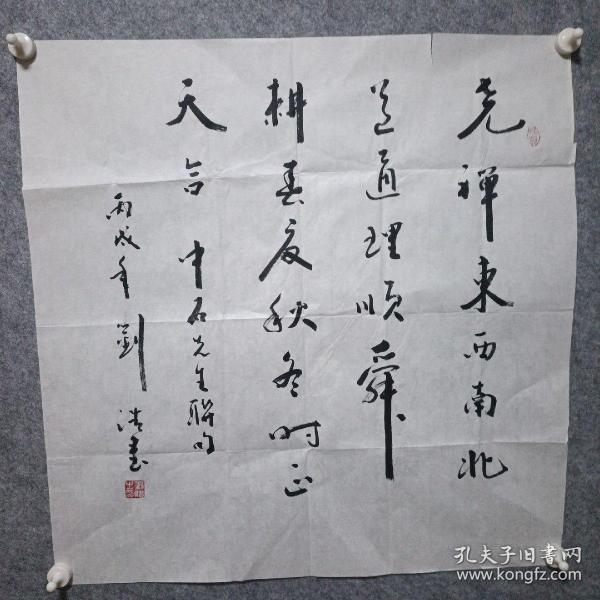 尧禅東西南北
道通理顺舜
耕春夏秋冬时正
天言 中石先生联句
丙戌年 劉浩書
孔夫子旧書网
www.kongfz.com